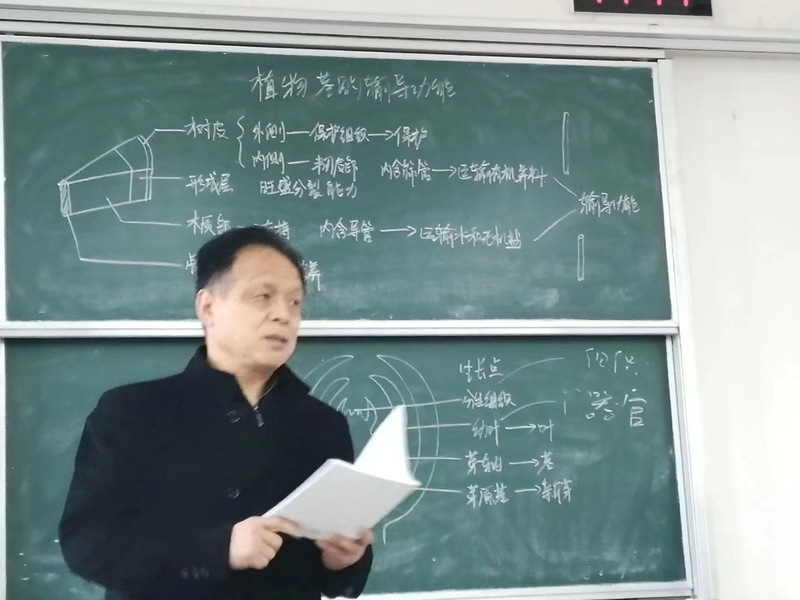 植物茎的输导功能
树皮 外侧—保护组织→保护
内侧—韧皮部 内含筛管→运输有机养料
形成层 旺盛分裂能力
输导功能
木质部 支持 内含导管→运输水和无机盐
养
生长点
分生组织
幼叶→叶
器官
芽轴→茎
芽原基→侧芽